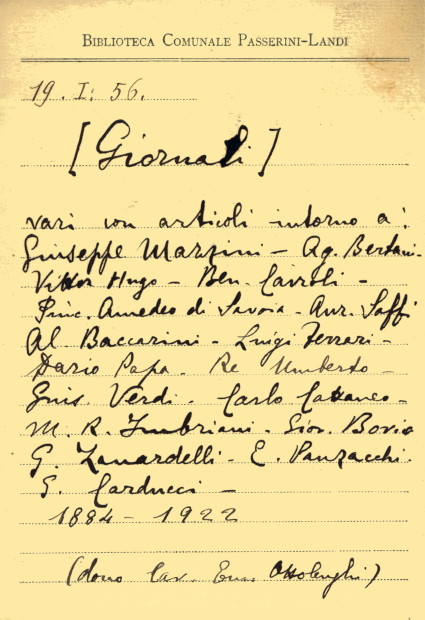 BIBLIOTECA COMUNALE PASSERINI-LANDI
19. I: 56.
[Giornali]
vari con articoli intorno a:
Giuseppe Mazzini - Ag. Bertani -
Vittor Hugo - Ben. Cairoli -
Princ. Amedeo di Savoia - Aur. Saffi
Al Baccarini - Luigi Ferrari -
Dario Papa - Re Umberto -
Gius. Verdi - Carlo Cattaneo -
M. R. Imbriani - Giov. Bovio
G. Zanardelli - E. Panzacchi -
G. Carducci -
1884 - 1922
(dono Cav. Ottolenghi)